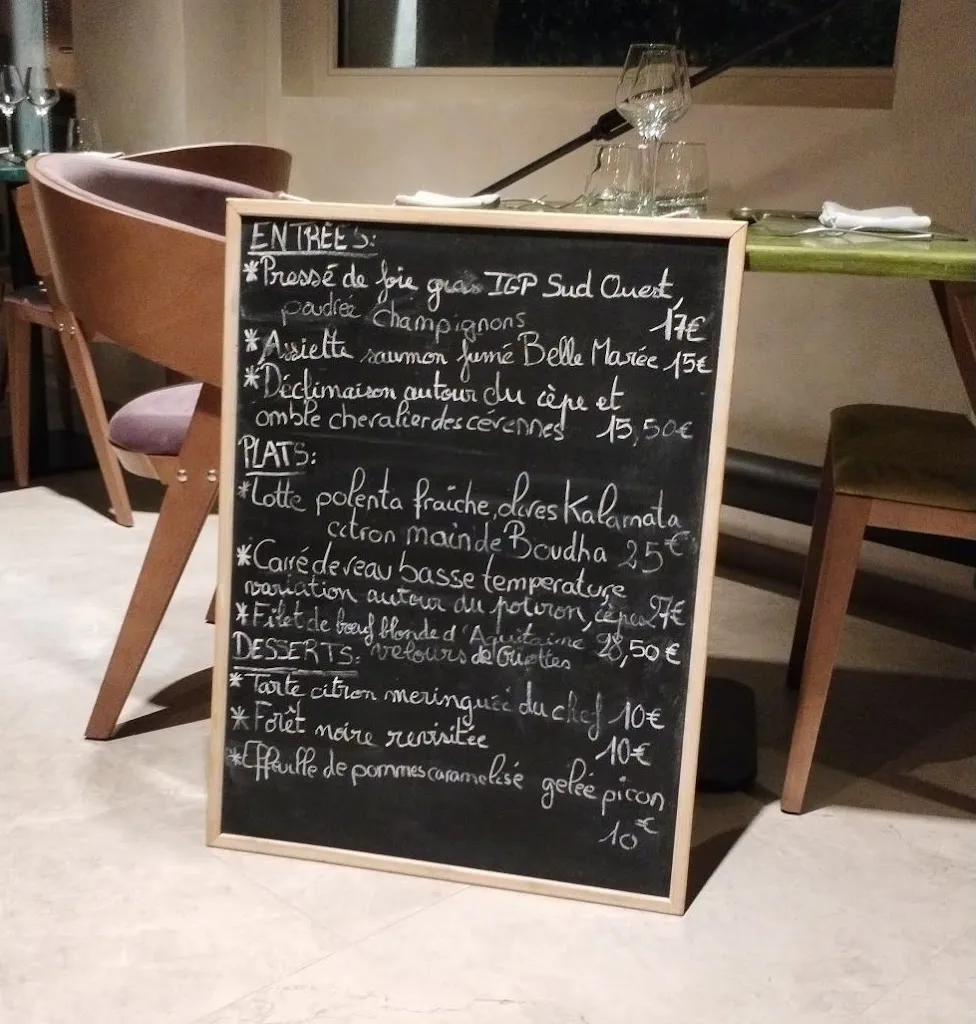 ENTRÉES:
*Pressé de foie gras IGP Sud Ouest,
poudrée champignons 17€
*Assiette saumon fumé Belle Marée 15€
*Déclimaison autour du cèpe et
omble chevalier des cévennes 15,50€
PLATS:
*Lotte polenta fraîche, olives Kalamata
citron main de Boudha 25€
*Carré de veau basse temperature
variation autour du potiron, cèpes 27€
*Filet de bœuf blonde d'Aquitaine 28,50€
velours de
DESSERTS:
*Tarte citron meringuée du chef 10€
*Forêt noire revisitée 10€
*Effeuille de pommes caramelisé gelée picon
10€